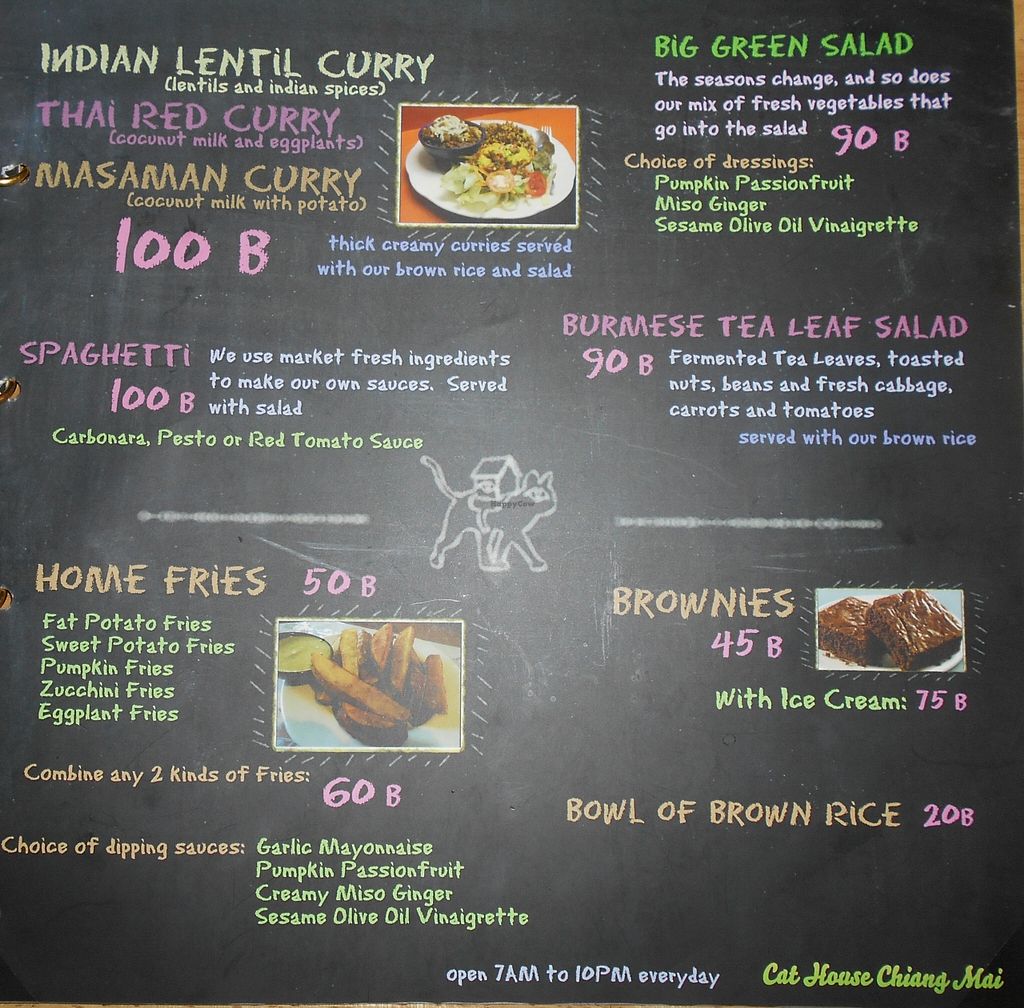 INDIAN LENTIL CURRY
(lentils and indian spices)
THAI RED CURRY
(coconut milk and eggplants)
MASAMAN CURRY
(coconut milk with potato)
100 B
thick creamy curries served
with our brown rice and salad
BIG GREEN SALAD
The seasons change, and so does
our mix of fresh vegetables that
go into the salad 90 B
Choice of dressings:
Pumpkin Passionfruit
Miso Ginger
Sesame Olive Oil Vinaigrette
SPAGHETTI
100 B
We use market fresh ingredients
to make our own sauces. Served
with salad
Carbonara, Pesto or Red Tomato Sauce
BURMESE TEA LEAF SALAD
90 B
Fermented Tea Leaves, toasted
nuts, beans and fresh cabbage,
carrots and tomatoes
served with our brown rice
HappyCow
HOME FRIES 50 B
Fat Potato Fries
Sweet Potato Fries
Pumpkin Fries
Zucchini Fries
Eggplant Fries
Combine any 2 kinds of Fries:
60 B
Choice of dipping sauces: Garlic Mayonnaise
Pumpkin Passionfruit
Creamy Miso Ginger
Sesame Olive Oil Vinaigrette
BROWNIES
45 B
With Ice Cream: 75 B
BOWL OF BROWN RICE 20B
open 7AM to 10PM everyday
Cat House Chiang Mai